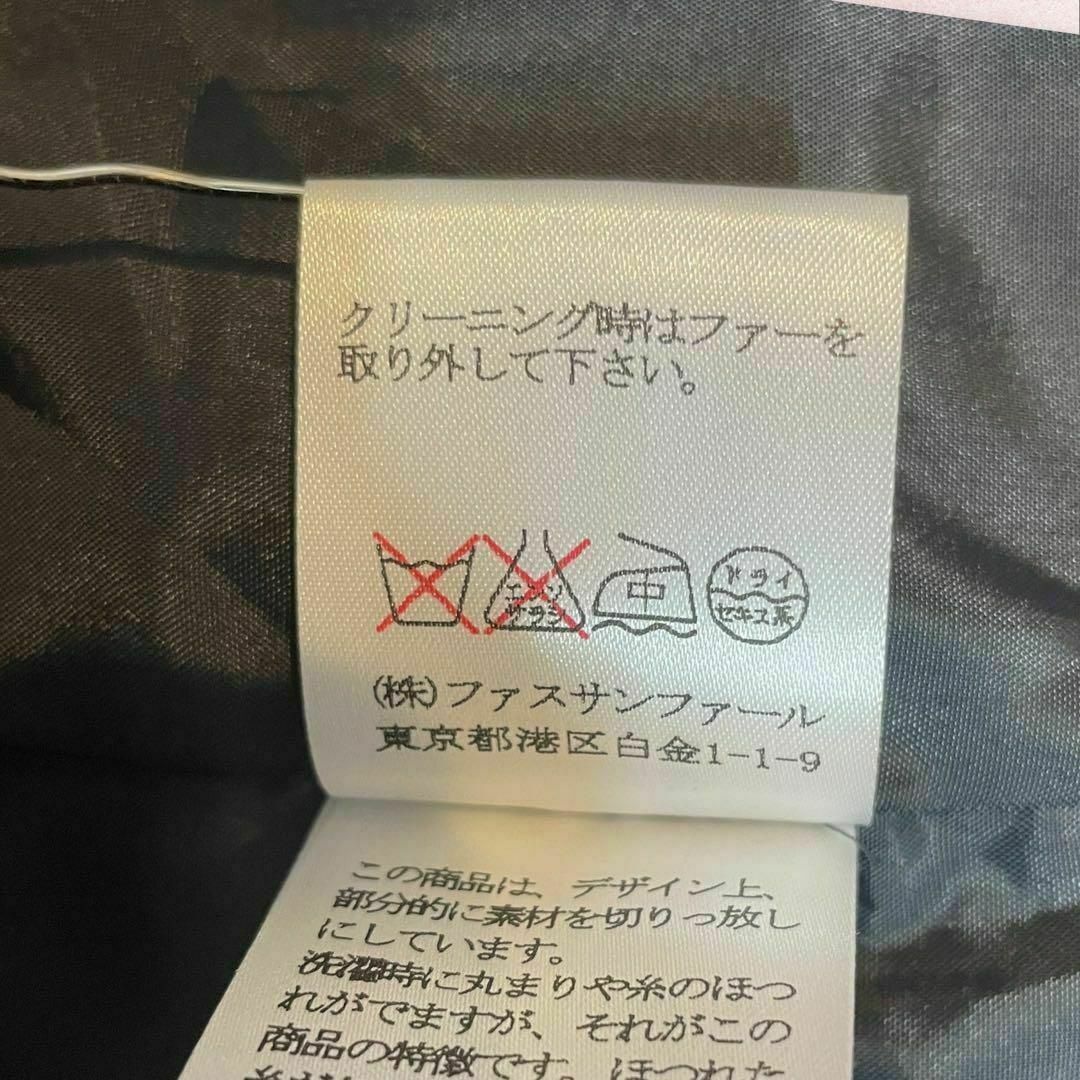 クリーニング時はファーを
取り外して下さい。
エンソ
サラシ
中
ドライ
セキユ系
(株)ファスサンファール
東京都港区白金1-1-9
この商品は、デザイン上、
部分的に素材を切りっ放し
にしています。
洗濯時に丸まりや糸のほつ
れがでますが、それがこの
商品の特徴です。ほつれた